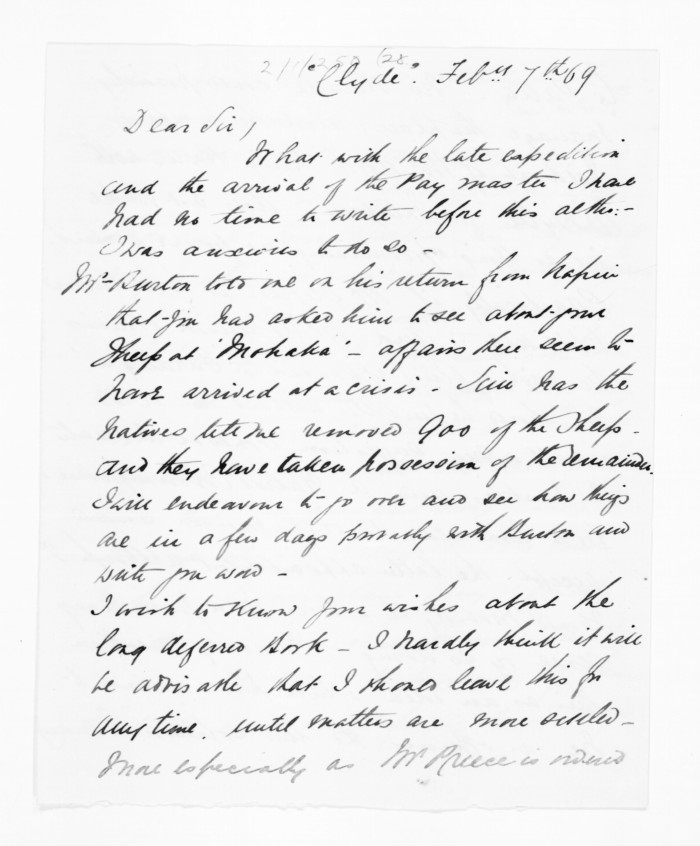 "Clyde". Feby 7th 69
Dear Sir,
What with the late expedition
and the arrival of the Pay master I have
had no time to write before this altho:-
I was anxious to do so -
Mr Burton told me on his return from Napier
that you had asked him to see about your
Sheep at 'Mohaka' - affairs there seem to
have arrived at a crisis - has the
Natives tell me removed 900 of the Sheep -
and they have taken possession of the remainder.
I will endeavour to go over and see how things
are in a few days probably with Burton and
write you word -
I wish to know your wishes about the
long deferred Book - I hardly think it will
be advisable that I should leave this for
any time. until matters are more settled -
More especially as Mr Preece is ordered